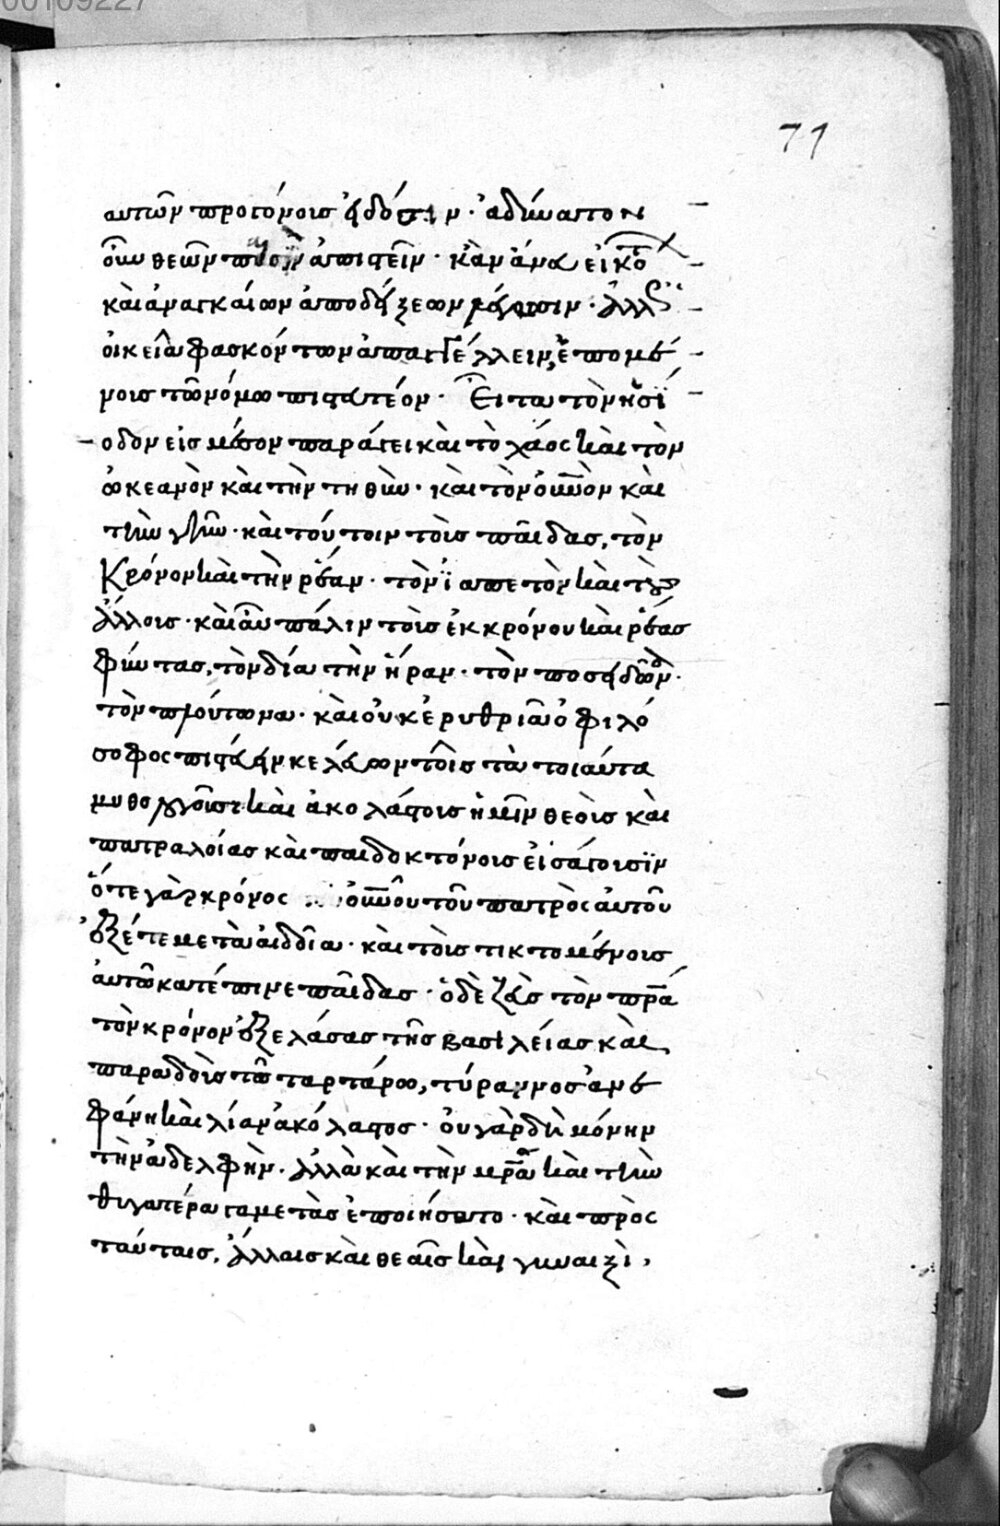 00109227
71
αὐτῶν προγόνοις εἰδόσιν · ἀδύνατον
οὖν θεῶν παισὶν ἀπιστεῖν · κἂν ἄνευ εἰκό
καὶ ἀναγκαίων ἀποδείξεων λέγωσιν · ἀλλ' ὡς
οἰκεῖα φασκόντων ἀπαγγέλλειν, ἑπομέ
νοις τῷ νόμῳ πιστευτέον · Εἶτα τὸν ἡσί
οδον εἰς μέσον παράγει καὶ τὸ χάος καὶ τὸν
ὠκεανὸν καὶ τὴν τηθὺν · καὶ τὸν οὐνὸν καὶ
τὴν γῆν · καὶ τούτοιν τοὺς παῖδας, τὸν
Κρόνον καὶ τὴν ῥέαν · τὸν ϊαπετὸν καὶ τοὺς
ἄλλους · καὶ αὖ πάλιν τοὺς ἐκ κρόνου καὶ ῥέας
φύντας, τὸν δία τὴν ἥραν · τὸν ποσειδῶν ·
τὸν πλούτωνα · καὶ οὐκ ἐρυθριᾶ ὁ φιλό
σοφος πιστεύειν κελεύων τοῖς τὰ τοιαῦτα
μυθολογοῦσι καὶ ἀκολάστοις ἡμῖν θεοὺς καὶ
πατραλοίας καὶ παιδοκτόνους εἰσάγουσϊν
ὅτε γὰρ κρόνος οὐνοῦ τοῦ πατρὸς αὐτοῦ
ἐξέτεμε τὰ αἰδοῖα · καὶ τοὺς τικτομένους
αὐτῶ κατέπινε παῖδας · ὁ δὲ ζεὺς τὸν πρα
τὸν κρόνον ἐξελάσας τῆς βασιλείας καὶ
παραδοὺς τῶ ταρτάρω, τύραννος ἀνε
φάνη καὶ λίαν ἀκόλαστος · οὐ γὰρ δὴ μόνην
τὴν ἀδελφὴν · ἀλλὰ καὶ τὴν μρα καὶ τὴν
θυγατέρα γαμετὰς ἐποιήσατο · καὶ πρὸς
ταύταις, ἄλλαις καὶ θεαῖς καὶ γυναιξὶ,